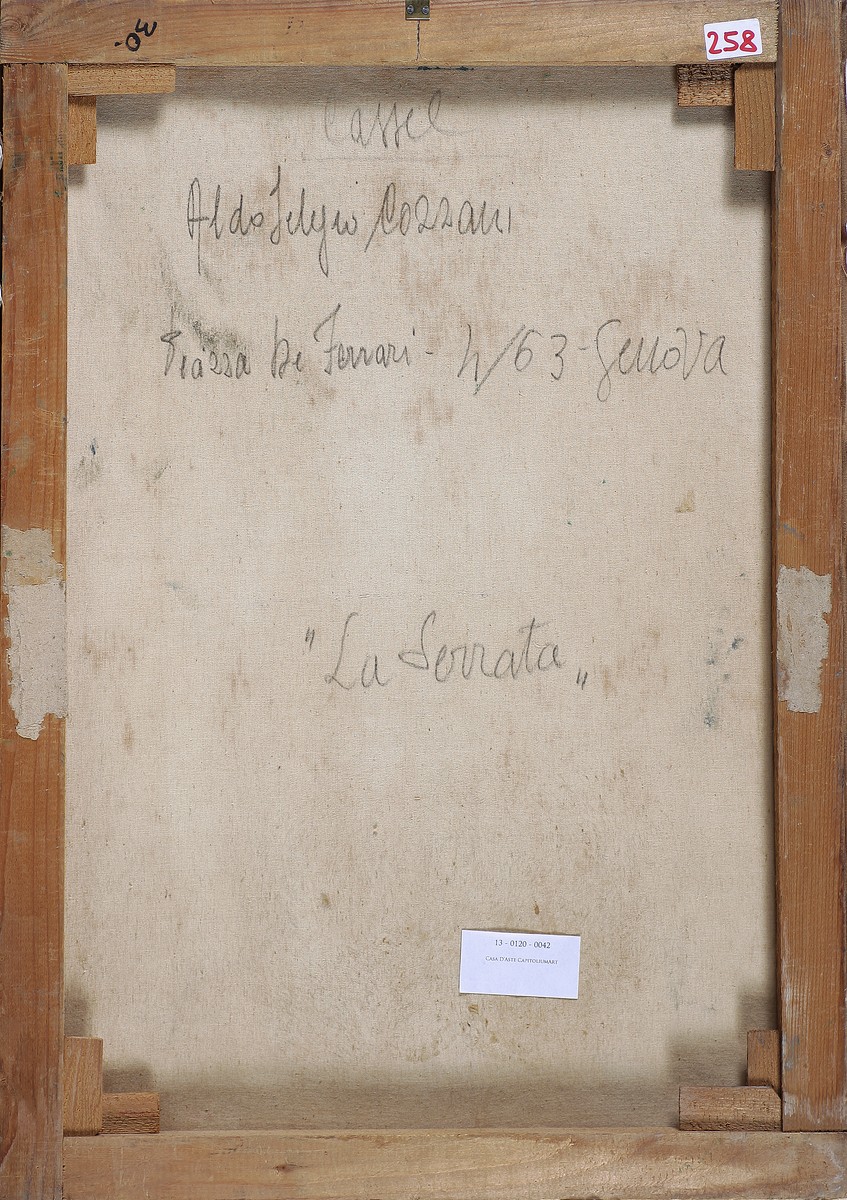 30.
258
Cassel
Aldo Selgio Cozzani
Piazza De Ferrari - 4/63 - Genova
"La Serrata"
13 - 0120 - 0042
Casa D'Aste Capitoliumart